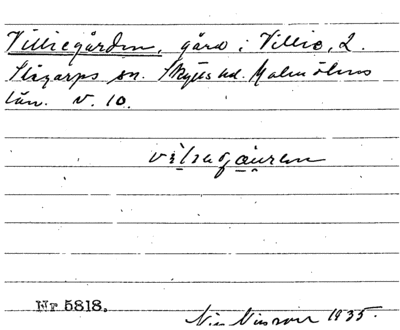 Villiegården, gård i Villie, 2.
Slågarps sn. Skytts hd. Malmöhus
län. N. 10.
Nr 5818.
Nils Nilsson 1935.